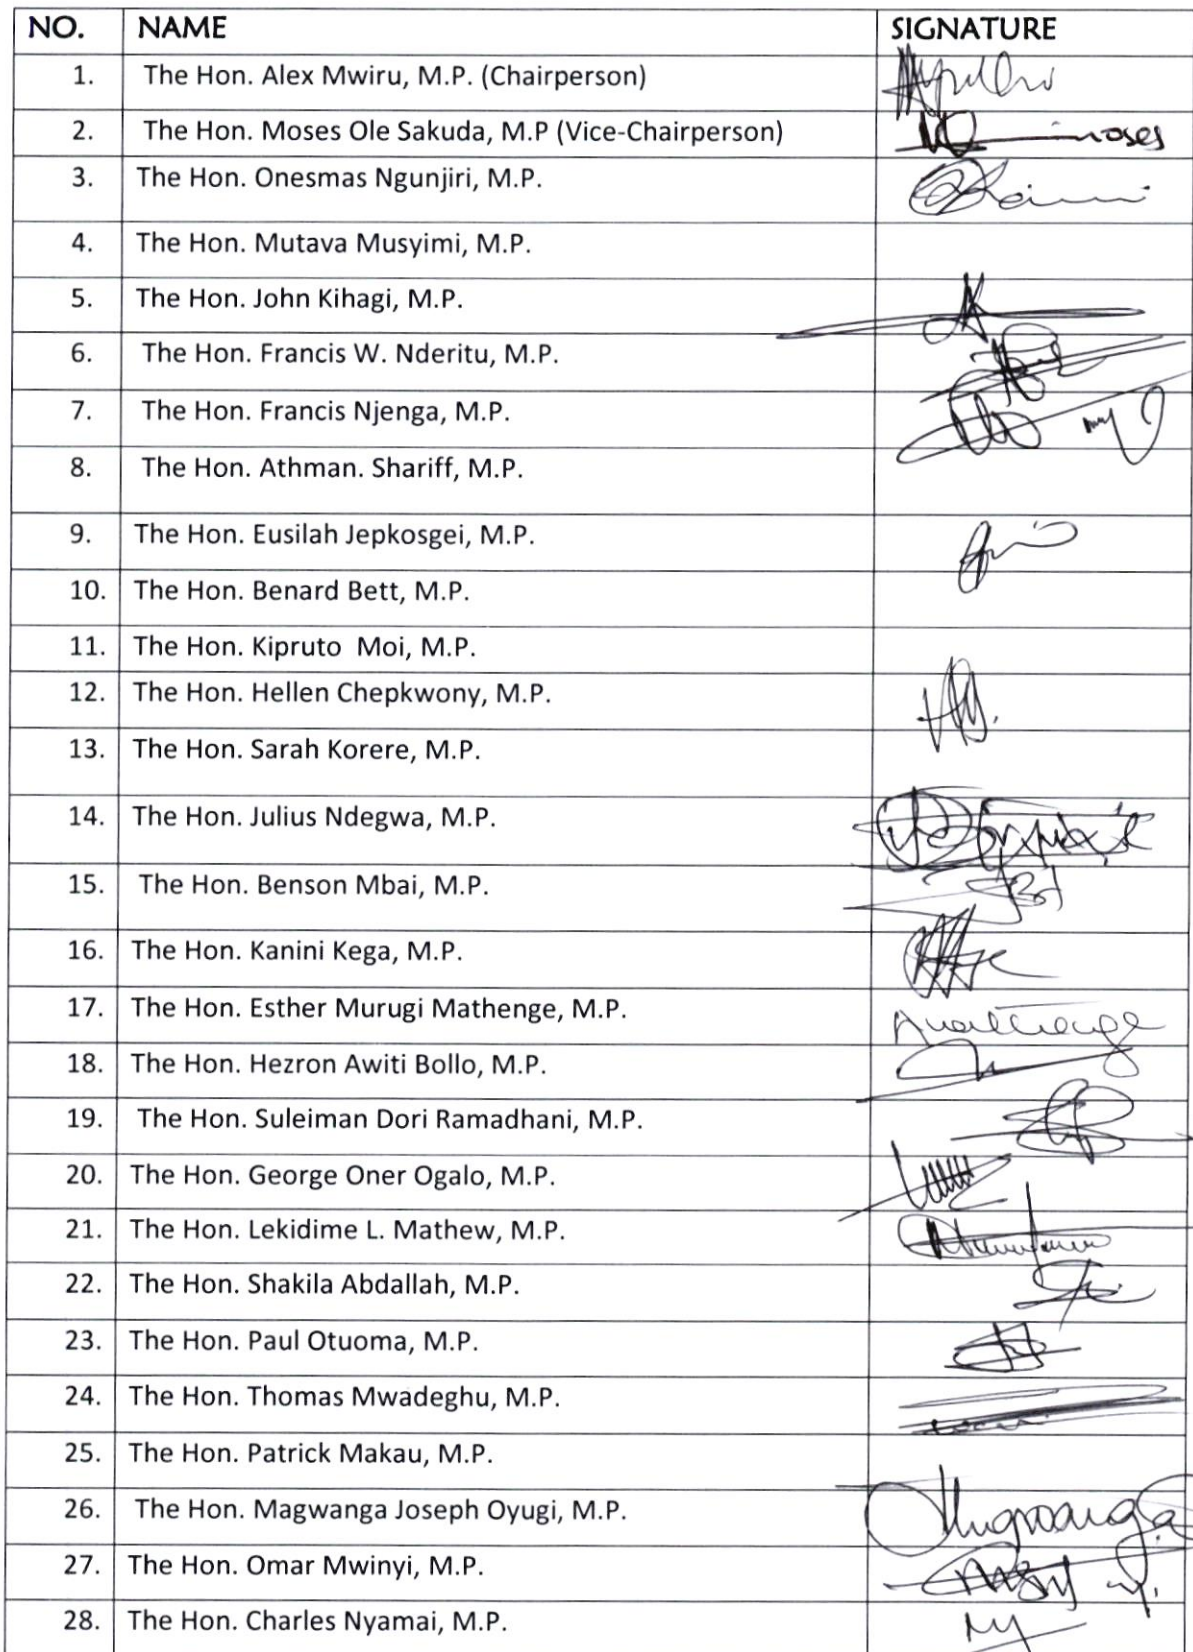 NO. NAME SIGNATURE
1. The Hon. Alex Mwiru, M.P. (Chairperson)
2. The Hon. Moses Ole Sakuda, M.P (Vice-Chairperson) moses
3. The Hon. Onesmas Ngunjiri, M.P.
4. The Hon. Mutava Musyimi, M.P.
5. The Hon. John Kihagi, M.P.
6. The Hon. Francis W. Nderitu, M.P.
7. The Hon. Francis Njenga, M.P.
8. The Hon. Athman. Shariff, M.P.
9. The Hon. Eusilah Jepkosgei, M.P.
10. The Hon. Benard Bett, M.P.
11. The Hon. Kipruto Moi, M.P.
12. The Hon. Hellen Chepkwony, M.P.
13. The Hon. Sarah Korere, M.P.
14. The Hon. Julius Ndegwa, M.P.
15. The Hon. Benson Mbai, M.P.
16. The Hon. Kanini Kega, M.P.
17. The Hon. Esther Murugi Mathenge, M.P.
18. The Hon. Hezron Awiti Bollo, M.P.
19. The Hon. Suleiman Dori Ramadhani, M.P.
20. The Hon. George Oner Ogalo, M.P.
21. The Hon. Lekidime L. Mathew, M.P.
22. The Hon. Shakila Abdallah, M.P.
23. The Hon. Paul Otuoma, M.P.
24. The Hon. Thomas Mwadeghu, M.P.
25. The Hon. Patrick Makau, M.P.
26. The Hon. Magwanga Joseph Oyugi, M.P.
27. The Hon. Omar Mwinyi, M.P.
28. The Hon. Charles Nyamai, M.P.